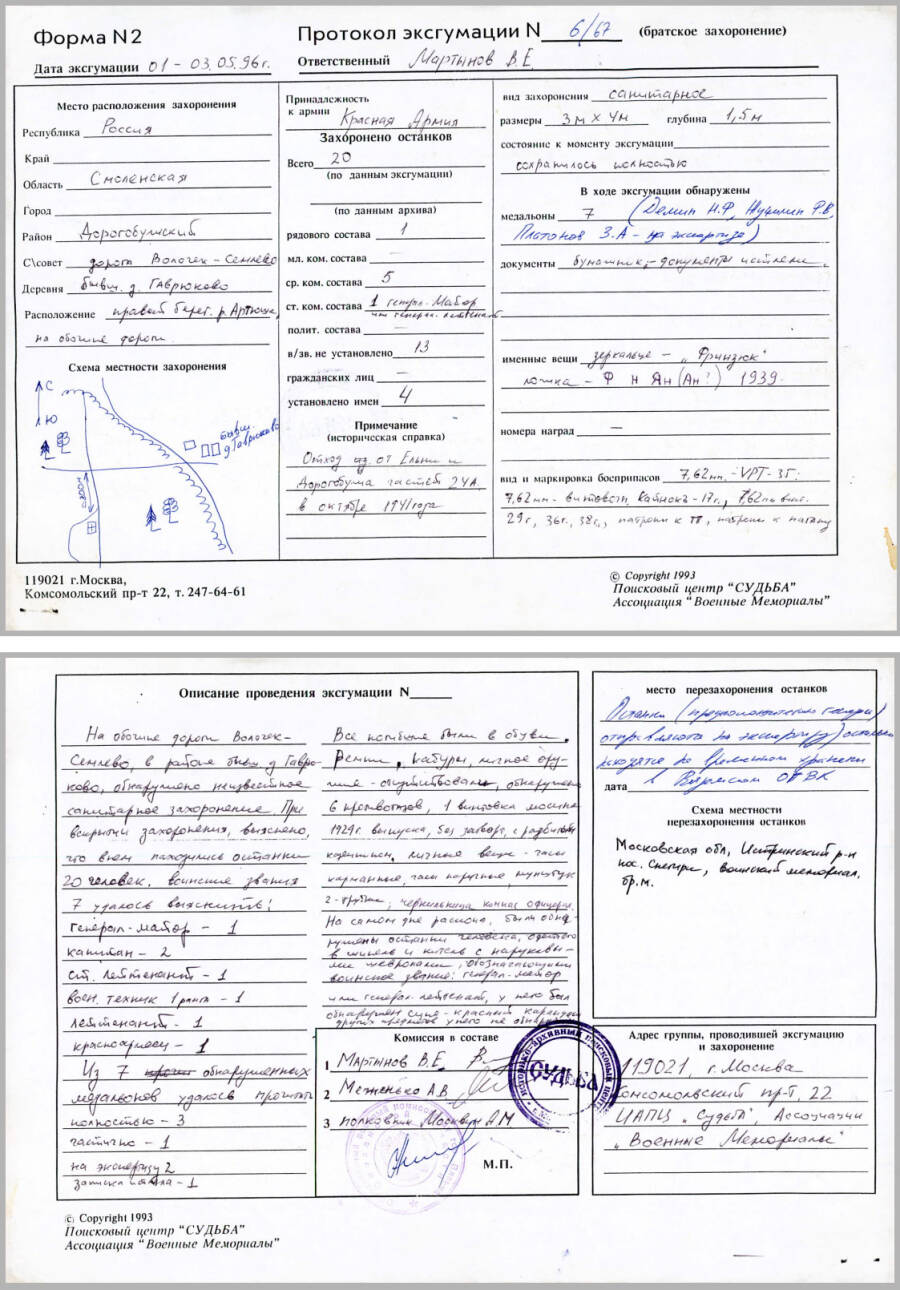 Форма N2
Протокол эксгумации N 6/67 (братское захоронение)
Дата эксгумации 01 - 03.05.96г.
Ответственный Мартынов В.Е.
Место расположения захоронения
Республика Россия
Край
Область Смоленская
Город
Район Дорогобужский
С\совет дорога Волочек-Семлево
Деревня бывш. д. Гаврюково
Расположение правый берег. р.
на обочине дороги.
Схема местности захоронения
С
Ю
бывш.
д Гаврюково
200м
Принадлежность
к армии Красная Армия
Захоронено останков
Всего 20
(по данным эксгумации)
(по данным архива)
рядового состава 1
мл. ком. состава —
ср. ком. состава 5
ст. ком. состава 1 генерал-майор
или генерал. лейтенант
полит. состава —
в/зв. не установлено 13
гражданских лиц —
установлено имен 4
Примечание
(историческая справка)
Отход из от Ельни и
Дорогобужа частей 24А.
в октябре 1941года
вид захоронения санитарное
размеры 3м х 4м глубина 1,5м
состояние к моменту эксгумации
сохранилось полностью
В ходе эксгумации обнаружены
медальоны 7 (Демин Н.Ф,
Платонов З.А - на экспертизе)
документы бумажник,- документы истлели.
именные вещи зеркальце - „Фринзюк"
ложка - Ф н Ян (Ан?) 1939.
номера наград —
вид и маркировка боеприпасов 7,62мм. -VPT-3Г.
7,62мм- 17г., 7,62мм винт.
29г, 36г., 38г., патроны к ТТ, патроны к нагану
119021 г.Москва,
Комсомольский пр-т 22, т. 247-64-61
© Copyright 1993
Поисковый центр “СУДЬБА”
Ассоциация “Военные Мемориалы”
Описание проведения эксгумации N
На обочине дороги Волочек-
Семлево, в районе бывш. д Гаврю-
ково, обнаружено неизвестное
санитарное захоронение. При
вскрытии захоронения, выяснено,
что в нем находились останки
20 человек. воинские звания
7 удалось выяснить:
генерал-майор - 1
капитан - 2
ст. лейтенант - 1
воен. техник 1 ранга - 1
лейтенант - 1
красноармеец - 1
Из 7 обнаруженных
медальонов удалось прочитать
полностью - 3
частично - 1
на экспертизу 2
записка истлела - 1
Все погибшие были в обуви.
Ремни, кабуры, личное ору-
жие отсутствовали, обнаружены
6 1 винтовка мосина
1929г. выпуска, без затвора, с разбитым
личные вещи - часы
карманные, часы наручные, мундштук
2-трубки, чернильница компас офицерск.
На самом дне раскопа, были обна-
ружены останки человека, одетого
в шинель и китель с нарукавны-
ми шевронами, обозначающими
воинское звание: генерал-майор
или генерал-лейтенант, у него был
обнаружен сине-красный карандаш
других предметов у него не обнаруж
Комиссия в составе
1 Мартынов В.Е
2 Меженько А.В
3 полковник Москвин А М
М.П.
СУДЬБА
место перезахоронения останков
Останки (предположительно генерал)
отправляются на экспертизу) остальные
находятся на временном хранении
дата в Вяземском ОГВК
Схема местности
перезахоронения останков
Московская обл, Истринский р-н
пос. Снегири, воинский мемориал.
бр.м.
Адрес группы, проводившей эксгумацию
и захоронение
119021, г. Москва
Комсомольский пр-т, 22
ИАПЦ „Судьба", Ассоциации
„Военные Мемориалы"
© Copyright 1993
Поисковый центр “СУДЬБА”
Ассоциация “Военные Мемориалы”